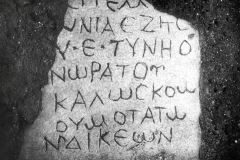 ΩΝΙΑΕΖΗϹ
Υ·Ε·ΤΥΝΗΟ
ΝωΡΑΤΟΤ
ΚΑΛωϹΚΟω
ΟΥωΟΤΑΤω
ΝΔΙΚΕωΝ